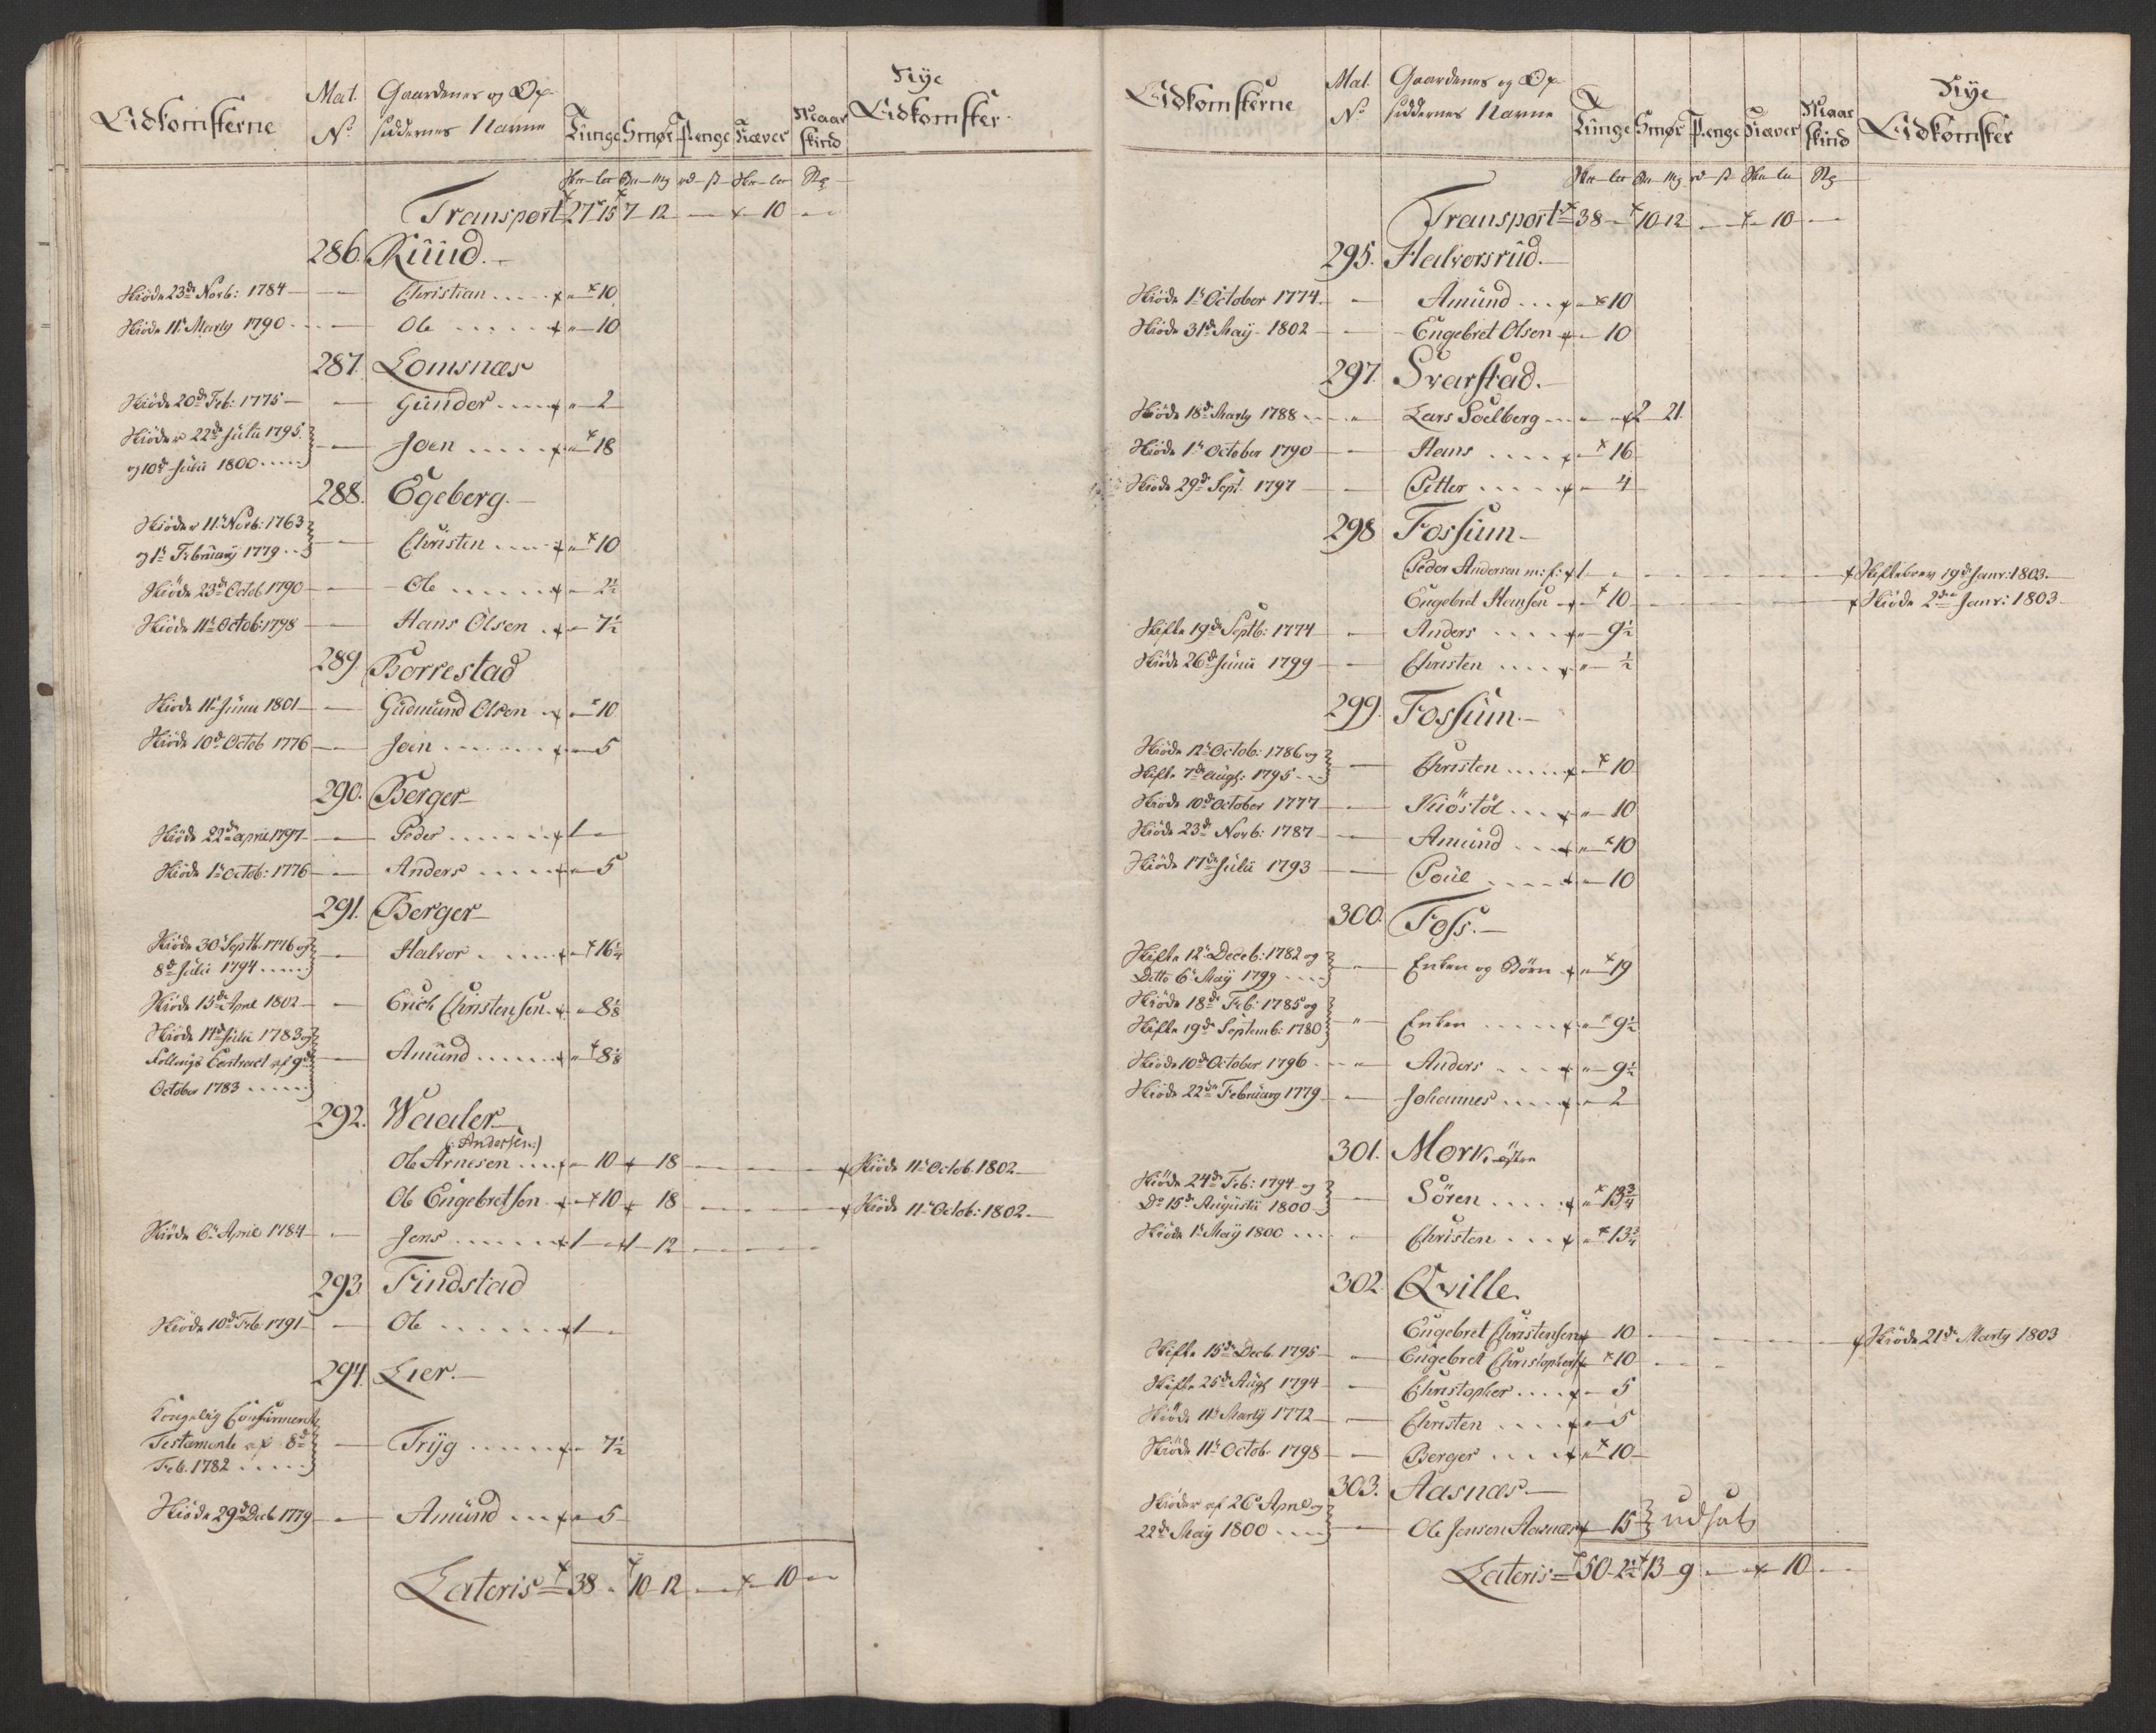 Adkomsterne
Mat. No.
Gaardenes og Op-
siddernes Navne
Tunge
Smør
Penge
Næver
Maar
skind
Nye
Adkomster
Transport 27 15 7 - 12 - 10
286. Ruud.
Skiøde 23de Novb: 1784 Christian 10
Skiøde 11te Marty 1790 Ole 10
287. Lomsnæs
Skiøde 20de Feb: 1775 Gunder 2
Skiøder 22de Julii 1795.
og 10de Julii 1800 Joen 18
288. Egeberg.
Skiøder 11te Novb: 1763
og 1te February 1779 Christen 10
Skiøde 23de Octob 1790 Ole 2½
Skiøde 11te Octob: 1798 Hans Olsen 7½
289. Borrestad
Skiøde 11te Junii 1801 Gudmund Olsen 10
Skiøde 10de Octob 1776 Joen 5
290. Berger
Skiøde 22de April 1797 Peder 1
Skiøde 1te Octob: 1776 Anders 5
291. Berger
Skiøde 30te Septb. 1776 og
8de Julii 1794 Halvor 16¼
Skiøde 13de April 1802 Erich Christensen 8⅛
Skiøde 17de Julii 1783 og
Contract af 9de
October 1783 Amund 8⅛
292. Waaler
(: Andersen:)
Ole Arnesen 10 18 Skiøde 11te Octob. 1802
Ole Engebretsen 10 18 Skiøde 11te Octob: 1802
Skiøde 6te April 1784 Jens 1 1 - 12
293. Findstad
Skiøde 10de Feb. 1791 Ole 1
294. Lier.
Kongelig Confirmeret
Testamente af 8de
Feb. 1782 Tryg 7½
Skiøde 29de Decb 1779 Amund 5
Lateris 38 10 - 12 - 10
Adkomsterne
Mat. No.
Gaardenes og Op-
siddernes Navne
Tunge
Smør
Penge
Næver
Maar
skind
Nye
Adkomster
Transport 38 10 - 12 - 10
295. Halvorsrud.
Skiøde 1te October 1774. Amund 10
Skiøde 31te May 1802 Engebret Olsen 10
297. Svarstad.
Skiøde 18de Marty 1788 Lars Soelberg 2 21
Skiøde 1te October 1790 Hans 16
Skiøde 29de Sept. 1797 Petter 4
298 Fossum
Peder Andersen m: f: 1 Skiftebrev 19de Janr: 1803.
Engebret Hansen 10 Skiøde 2den Janr: 1803
Skifte 19de Septb: 1774 Anders 9½
Skiøde 26de Junii 1799 Christen ½
299. Fossum.
Skiøde 12te Octob: 1786 og
Skifte 7de Augs: 1795 Christen 10
Skiøde 10de October 1777 Kiøstøl 10
Skiøde 23de Novb: 1787 Amund 10
Skiøde 17de Julii 1793 Poul 10
300. Foss.
Skifte 12te Deceb: 1782 og
Ditto 6te May 1799 Enken og Børn 19
Skiøde 18de Feb: 1785 og
Skifte 19de Septemb: 1780 Enken 9½
Skiøde 10de October 1796 Anders 9½
Skiøde 22de February 1779 Johannes 2
301. Mork østre
Skiøde 24de Feb: 1794 og
Do 15de Augusti 1800 Sören 13¾
Skiøde 1te May 1800 Christen 13¾
302. Qville
Engebret Christensen 10 Skiøde 21de Marty 1803
Skifte 15de Decb. 1795 Engebret Christophers 10
Skifte 25de Augs 1794 Christopher 5
Skiøde 11te Marty 1772 Christen 5
Skiøde 11te Octob. 1798 Berger 10
303. Aasnæs
Skiøder af 26te April og
22de May 1800 Ole Jensen Aasnæs 15 udsat
Lateris 50 - 2½ 13 - 9 - 10